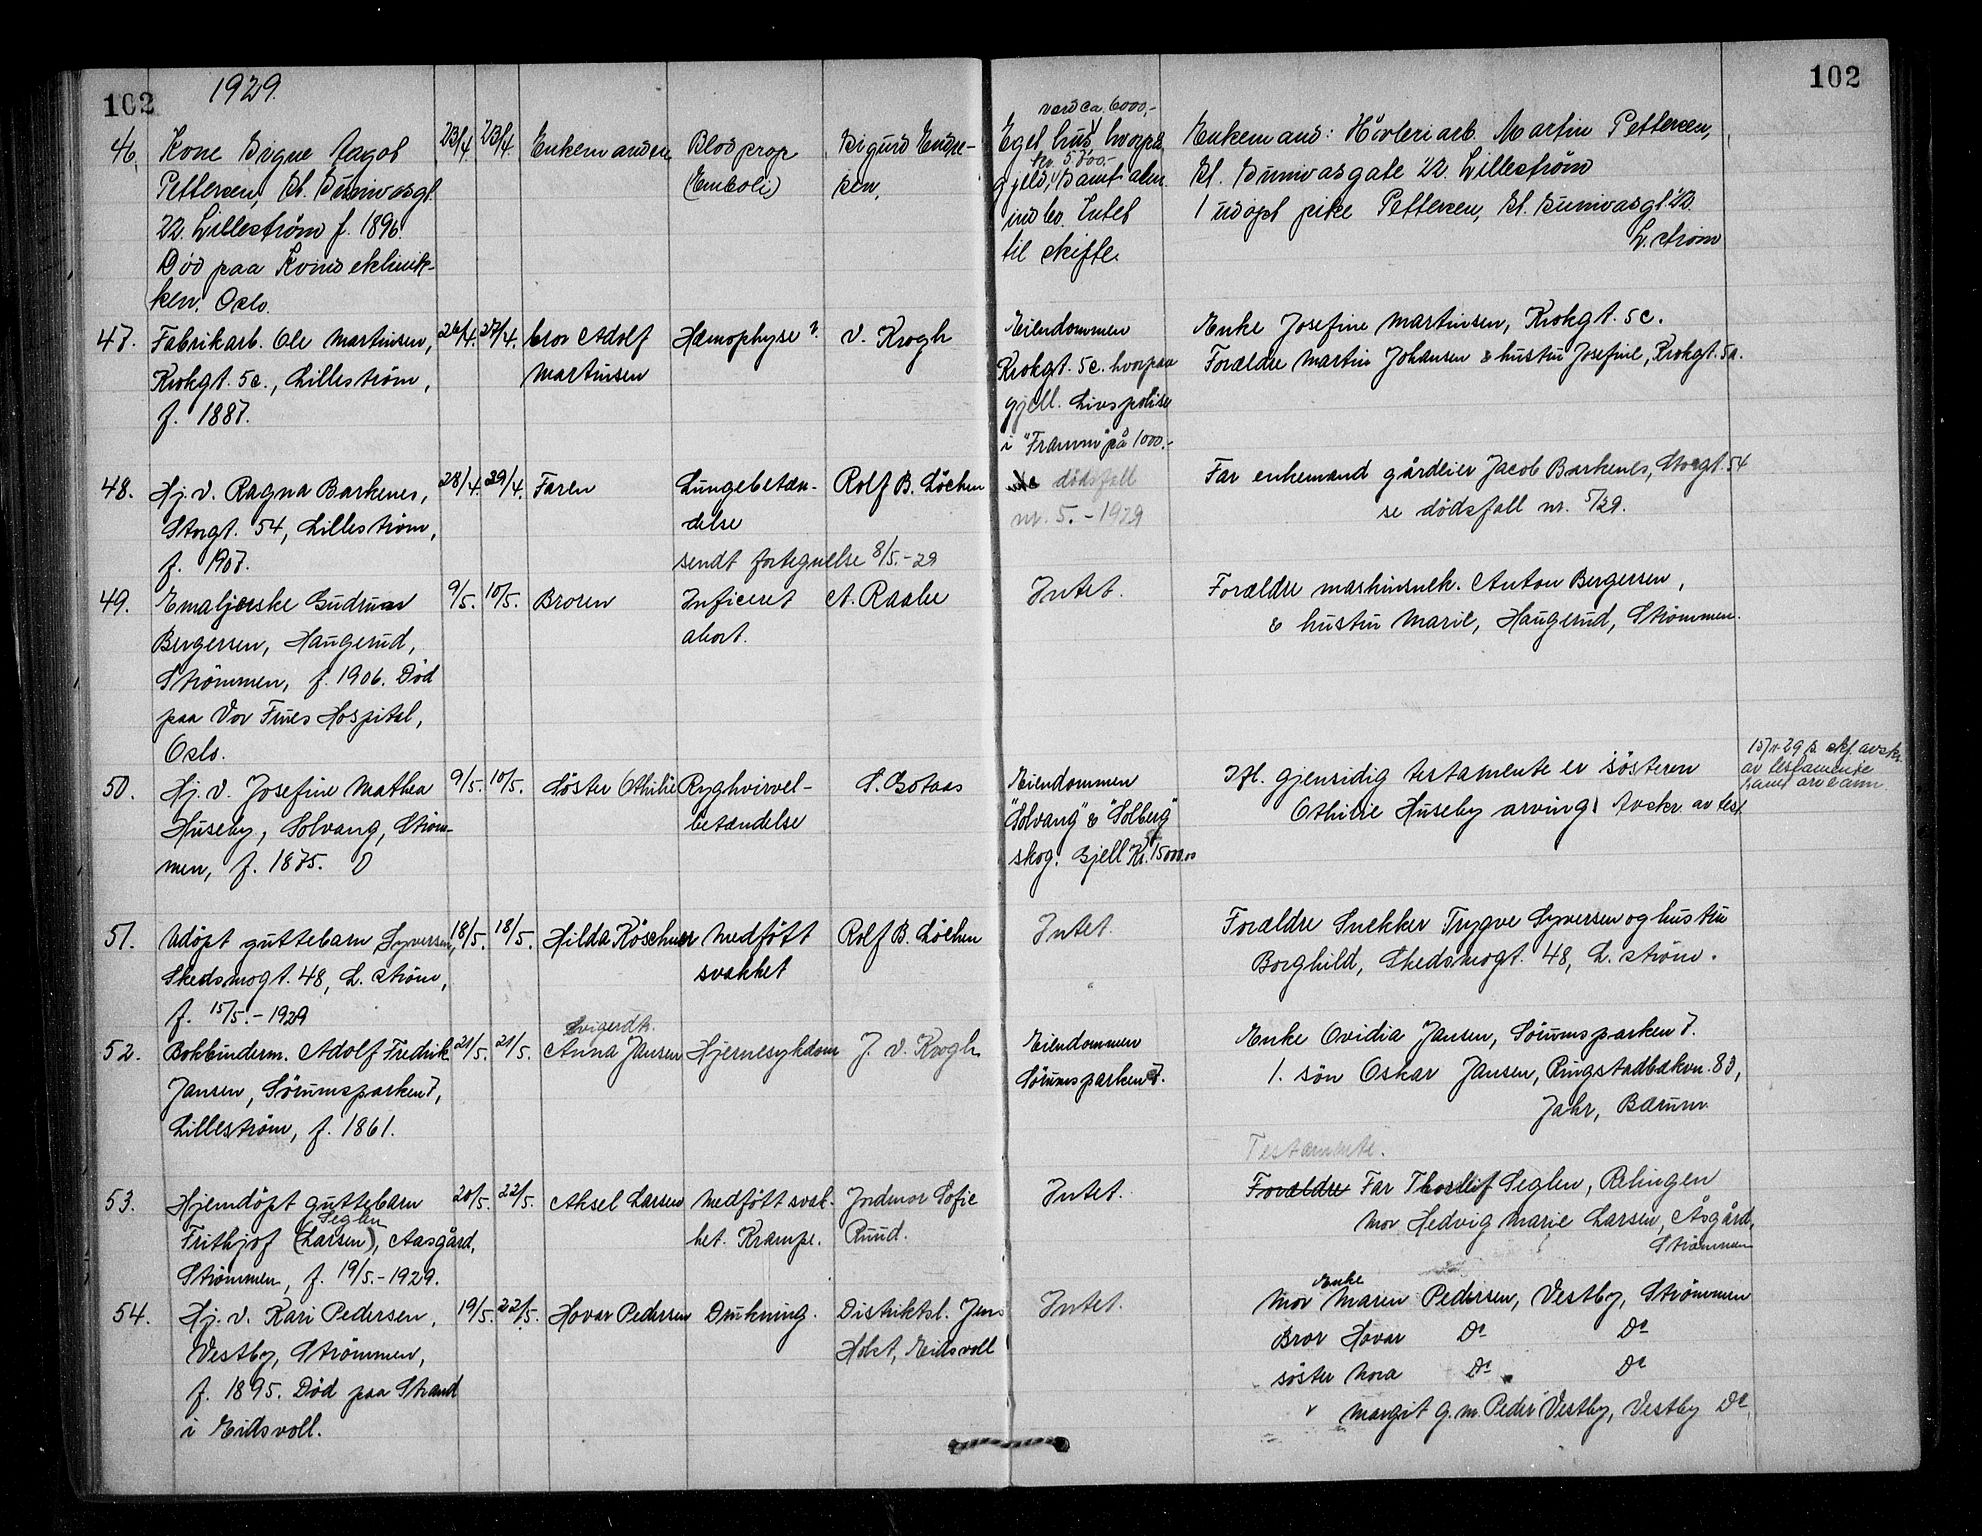 102
1929.
102
46.
Kone Signe Jagob
Pettersen, St. Sunivasgt.
22. Lillestrøm f. 1896.
Død paa Kvindeklinik-
ken, Oslo.
23/4. 23/4.
Enkemanden
Blodprop
(Emboli)
Sigurd Endre-
sen.
verd ca. 6000,-
Eget hus, hvorpå
kr. 5500,-
gjeld, samt alm.
indbo. Intet
til skifte.
Enkemand: Høvleriarb. Martin Pettersen,
St. Sunivasgate 22. Lillestrøm
1 udøpt pike Pettersen, St. Sunivasgt 22.
L. strøm
47.
Fabrikarb. Ole Martinsen,
Krokgt. 5c., Lillestrøm,
f. 1887.
26/4. 27/4.
bror Adolf
Martinsen
Hæmophyse?
V. Krogh
Eiendommen
Krokgt. 5c. hvorpaa
gjell. Livspolise
i "Framm" på 1000.-
Enke Josefine Martinsen, Krokgt. 5c.
Forældre Martin Johansen & hustru Josefine, Krokgt. 5a.
48.
Hj. v. Ragna Barkenes,
Storgt. 54, Lillestrøm,
f. 1907.
28/4. 29/4.
Faren
Lungebetæn-
delse
sendt fortegnelse 8/5.-29
Rolf B. Löchen
dødsfall
nr. 5. - 1929
Far enkemand gårdeier Jacob Barkenes, Storgt. 54
se dödsfall nr. 5/29.
49.
Emaljerske Gudrun
Bergersen, Haugerud,
Strømmen, f. 1906. Död
paa Vor Frues Hospital,
Oslo.
9/5. 10/5.
Broren
Inficeret
abort.
A. Raabe
Intet.
Forældre maskinsnek. Anton Bergersen,
& hustru Marie, Haugerud, Strømmen.
50.
Hj. v. Josefine Mathea
Huseby, Solvang, Strøm-
men, f. 1875.
9/5. 10/5.
Söster Othilie
Ryghvirvel-
betændelse
S. Gotaas
Eiendommen
"Solvang" & "Solberg"
skog. Gjell Kr. 15000.00
Ifl. gjensidig testamente er søsteren
Othilie Huseby arving. Avskr. av test.
skf. avskr.
av testamente
samt arveann.
51.
Udöpt guttebarn Syversen,
Skedsmogt. 48, L. strøm,
f. 15/5. - 1929
18/5. 18/5.
Hilda Röschner
Medfött
svakhet
Rolf B. Löchen
Intet.
Forældre Snekker Trygve Syversen og hustru
Borghild, Skedsmogt. 48, L. strøm.
52.
Bokbinderm. Adolf Fredrik
Jansen, Sörumsparken 7,
Lillestrøm, f. 1861.
21/5. 21/5.
Svigerdtr.
Anna Jansen
Hjernesykdom
J. V. Krogh
Eiendommen
Sörumsparken 7.
Enke Ovidia Jansen, Sörumsparken 7.
1. sön Oskar Jansen, Ringstadbækvn. 83,
Jahr, Bærum.
Testamente.
53.
Hjemdöpt guttebarn
Seglen
Frithjof (Larsen), Aasgård,
Strømmen, f. 19/5. - 1929.
20/5. 22/5.
Aksel Larsen
Medfött svak-
het. Krampe.
Jordmor Sofie
Ruud.
Intet.
Forældre Far Thorleif Seglen, Rælingen
Mor Hedvig Marie Larsen, Åsgård,
Strømmen
54.
Hj. v. Kari Pedersen,
Vestby, Strømmen,
f. 1895. Död paa Strand
i Eidsvoll.
19/5. 22/5.
Hovar Pedersen
Drukning.
Distriktsl. Jens
Holst, Eidsvoll
Intet.
Enke
Mor Maren Pedersen, Vestby, Strømmen
Bror Hovar Do Do
søster Nora Do Do
" Margit g. m. Peder Vestby, Vestby Do